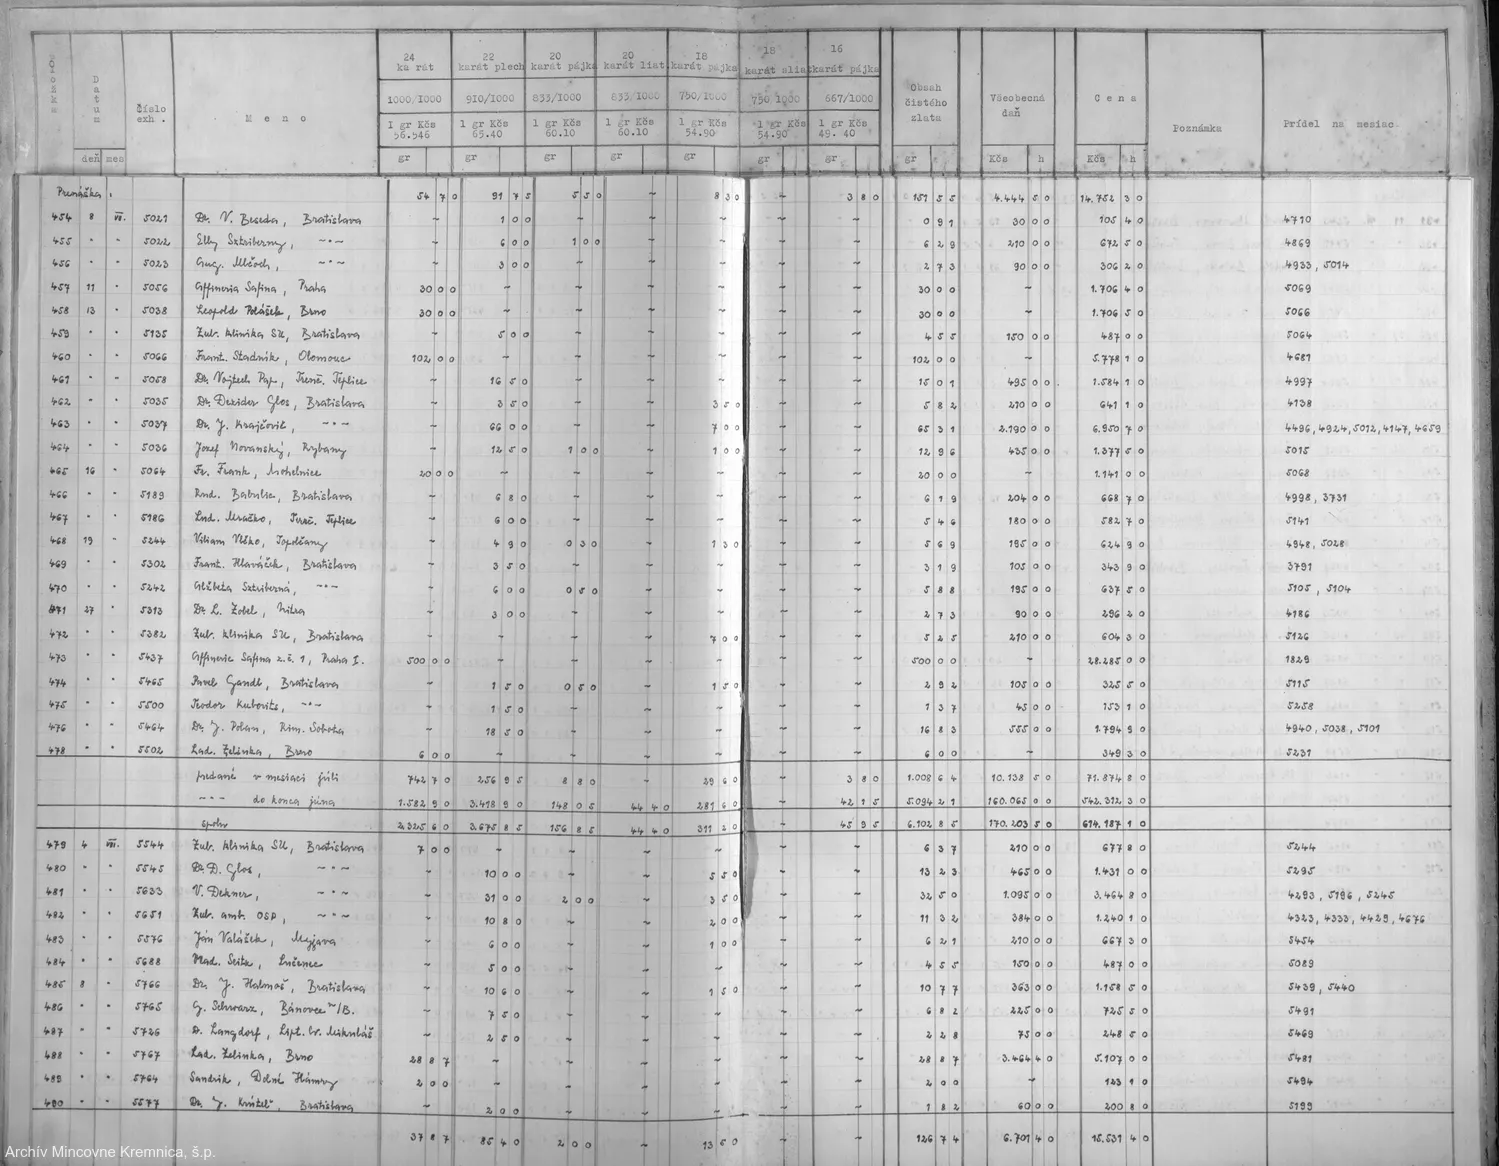 Číslo
Dátum
deň mes
Číslo exh.
Meno
24 karát 1000/1000 1 gr Kčs 56.546 gr
22 karát plech 910/1000 1 gr Kčs 65.40 gr
20 karát pájka 833/1000 1 gr Kčs 60.10 gr
20 karát liat. 833/1000 1 gr Kčs 60.10 gr
18 karát pájka 750/1000 1 gr Kčs 54.90 gr
18 karát 750/1000 1 gr Kčs 54.90 gr
16 karát pájka 667/1000 1 gr Kčs 49.40 gr
Obsah čistého zlata gr
Všeobecná daň Kčs h
Cena Kčs h
Poznámka
Prídel na mesiac
54 70 91 75 5 50 ~ 8 30 ~ 3 80 151 55 4.444 50 14.752 30
454 8 VII. 5021 Dr. V. Beseda, Bratislava ~ 1 00 ~ ~ ~ ~ ~ 0 91 30 00 105 40 4710
455 " " 5022 Elly Sztriberny, -"- ~ 6 00 1 00 ~ ~ ~ ~ 6 29 210 00 672 50 4869
456 " " 5023 -"- ~ 3 00 ~ ~ ~ ~ ~ 2 73 90 00 306 20 4933, 5014
457 11 " 5056 Affineria Safina, Praha 30 00 ~ ~ ~ ~ ~ ~ 30 00 ~ 1.706 40 5069
458 13 " 5038 Leopold Polášek, Brno 30 00 ~ ~ ~ ~ ~ ~ 30 00 ~ 1.706 50 5066
459 " " 5135 Zub. klinika SU, Bratislava ~ 5 00 ~ ~ ~ ~ ~ 4 55 150 00 487 00 5064
460 " " 5066 Frant. Stadnik, Olomouc 102 00 ~ ~ ~ ~ ~ ~ 102 00 ~ 5.778 10 4681
461 " " 5058 Dr. Vojtech Pap, Trenč. Teplice ~ 16 50 ~ ~ ~ ~ ~ 15 01 495 00 1.584 10 4997
462 " " 5035 Dr. Dezider Glos, Bratislava ~ 3 50 ~ ~ 3 50 ~ ~ 5 82 210 00 641 10 4138
463 " " 5037 Dr. J. Krajčovič, -"- ~ 66 00 ~ ~ 7 00 ~ ~ 65 31 2.190 00 6.950 70 4496, 4924, 5012, 4147, 4659
464 " " 5036 Jozef Novanský, Rybany ~ 12 50 1 00 ~ 1 00 ~ ~ 12 96 435 00 1.377 50 5015
465 16 " 5064 Fr. Frank, Mohelnice 20 00 ~ ~ ~ ~ ~ ~ 20 00 ~ 1.141 00 5068
466 " " 5189 Rud. Babulic, Bratislava ~ 6 80 ~ ~ ~ ~ ~ 6 19 204 00 668 70 4998, 3731
467 " " 5186 Lud. Mračko, Trenč. Teplice ~ 6 00 ~ ~ ~ ~ ~ 5 46 180 00 582 70 5141
468 19 " 5244 Viliam Vlško, Topoľčany ~ 4 90 0 30 ~ 1 30 ~ ~ 5 69 195 00 624 90 4948, 5028
469 " " 5302 Frant. Hlaváček, Bratislava ~ 3 50 ~ ~ ~ ~ ~ 3 19 105 00 343 90 3791
470 " " 5242 Alžbeta Sztriberná, -"- ~ 6 00 0 50 ~ ~ ~ ~ 5 88 195 00 637 50 5105, 5104
471 27 " 5313 Dr. L. Zobel, Nitra ~ 3 00 ~ ~ ~ ~ ~ 2 73 90 00 296 20 4186
472 " " 5382 Zub. klinika SU, Bratislava ~ ~ ~ ~ 7 00 ~ ~ 5 25 210 00 604 30 5126
473 " " 5437 Affinerie Safina z.č. 1, Praha I. 500 00 ~ ~ ~ ~ ~ ~ 500 00 ~ 28.285 00 1829
474 " " 5465 Pavel Gandl, Bratislava ~ 1 50 0 50 ~ 1 50 ~ ~ 2 92 105 00 325 50 5115
475 " " 5500 Teodor Kubovits, -"- ~ 1 50 ~ ~ ~ ~ ~ 1 37 45 00 153 10 5258
476 " " 5464 Dr. J. Polan, Rim. Sobota ~ 18 50 ~ ~ ~ ~ ~ 16 83 555 00 1.794 90 4940, 5038, 5101
478 " " 5502 Lad. Zelinka, Brno 6 00 ~ ~ ~ ~ ~ ~ 6 00 ~ 349 30 5231
predané v mesiaci júli 742 70 256 95 8 80 ~ 29 60 ~ 3 80 1.008 64 10.138 50 71.874 80
-"- do konca júna 1.582 90 3.418 90 148 05 44 40 281 60 ~ 42 15 5.094 21 160.065 00 542.312 30
spolu 2.325 60 3.675 85 156 85 44 40 311 20 ~ 45 95 6.102 85 170.203 50 614.187 10
479 4 VIII. 5544 Zub. klinika SU, Bratislava 7 00 ~ ~ ~ ~ ~ 6 37 210 00 677 80 5244
480 " " 5545 Dr. D. Glos, -"- ~ 10 00 ~ ~ 5 50 ~ ~ 13 23 465 00 1.431 00 5295
481 " " 5633 V. Dekner, -"- ~ 31 00 2 00 ~ 3 50 ~ ~ 32 50 1.095 00 3.464 80 4293, 5196, 5245
482 " " 5651 Zub. amb. OSP, -"- ~ 10 80 ~ ~ 2 00 ~ ~ 11 32 384 00 1.240 10 4323, 4333, 4429, 4676
483 " " 5576 Ján Valášek, Myjava ~ 6 00 ~ ~ 1 00 ~ ~ 6 21 210 00 667 30 5454
484 " " 5688 Vlad. Seitz, Lučenec ~ 5 00 ~ ~ ~ ~ ~ 4 55 150 00 487 00 5089
485 8 " 5766 Dr. J. Halmoš, Bratislava ~ 10 60 ~ ~ 1 50 ~ ~ 10 77 363 00 1.158 50 5439, 5440
486 " " 5765 G. Schwarz, Bánovce n/B. ~ 7 50 ~ ~ ~ ~ ~ 6 82 225 00 725 50 5491
487 " " 5726 D. Langdorf, Lipt. Sv. Mikuláš ~ 2 50 ~ ~ ~ ~ ~ 2 28 75 00 248 50 5469
488 " " 5767 Lad. Zelinka, Brno 28 87 ~ ~ ~ ~ ~ ~ 28 87 3.464 40 5.107 00 5481
489 " " 5764 Sandrik, Dolné Hámry 2 00 ~ ~ ~ ~ ~ ~ 2 00 ~ 123 10 5494
490 " " 5577 Dr. J. Bratislava ~ 2 00 ~ ~ ~ ~ ~ 1 82 60 00 200 80 5199
37 87 85 40 2 00 ~ 13 50 ~ ~ 126 74 6.701 40 15.531 40
Archív Mincovne Kremnica, š.p.